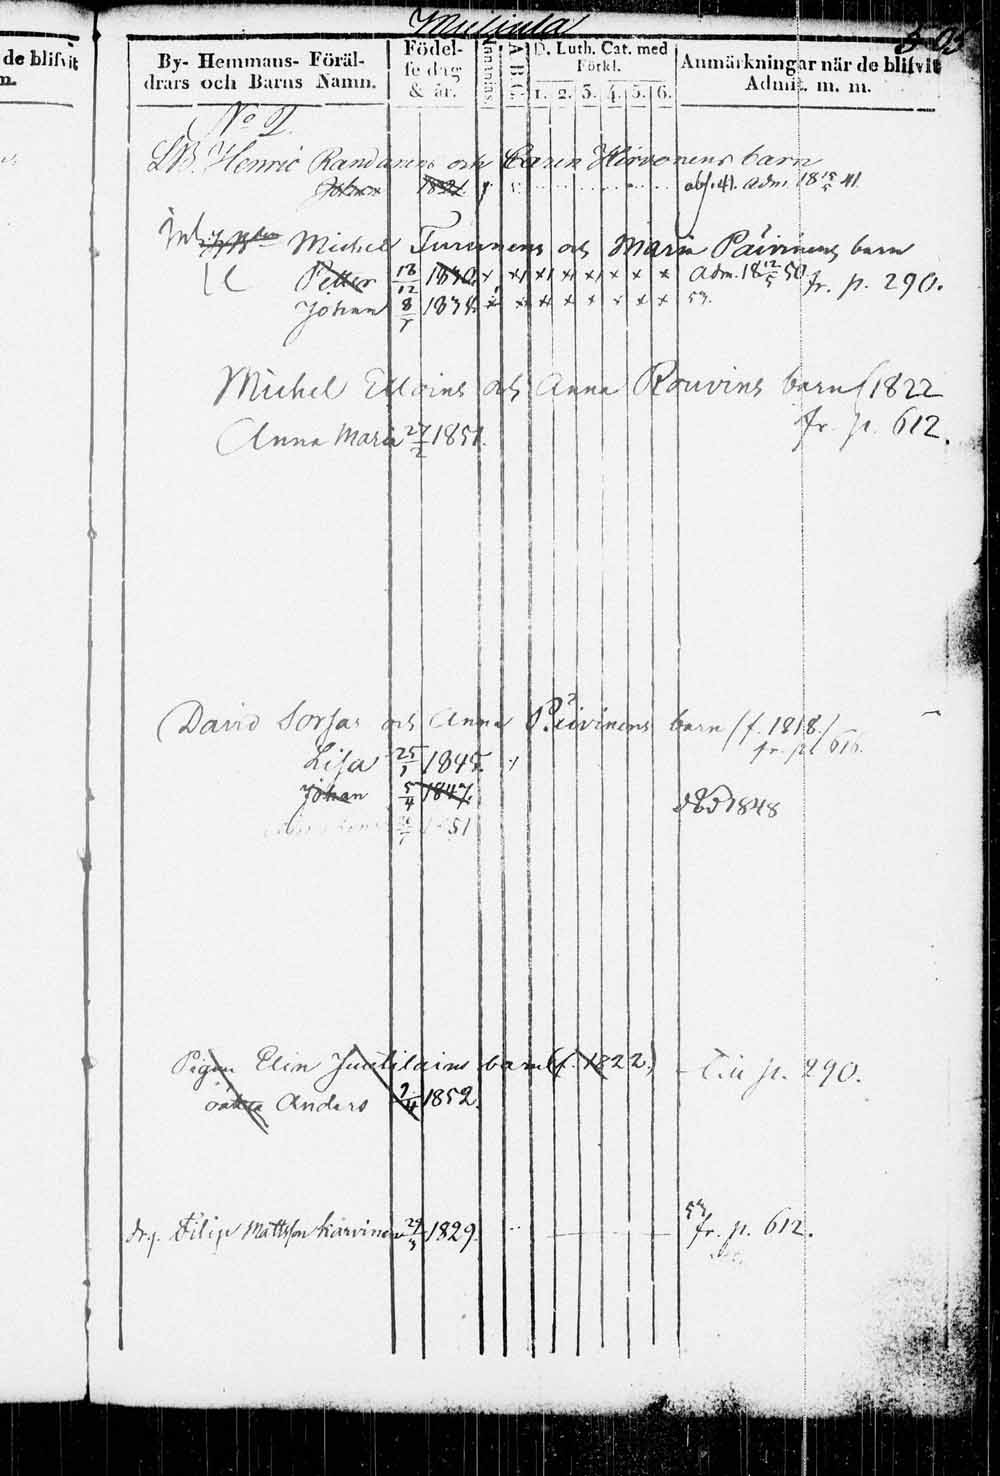 de blifvit
m.
505
By- Hemmans- Föräl-
drars och Barns Namn.
Födel-
sedag
& år.
Innanläs
A. B. C.
D. Luth. Cat. med
Förkl.
1. 2. 3. 4. 5. 6.
Anmärkningar när de blifvit
Admit. m. m.
No 2
Henric Randanens och Caren Hirvonens barn
Johan 1821. abs. 41. adm. 18 18/5 41.
Inh. Michel Turunens och Maria Päivinens barn
Petter 13/12 1830. x x x x x x x x adm. 18 12/5 50. fr. p. 290.
Johan 8/5 1838. x x x x x x x x 57.
Michel och Anna Rouvins barn (1822
Anna Maria 27/2 1851. fr. p. 612.
David Sorsas och Anna Päivinens barn (f. 1818.)
fr. p. 616.
Lisa 25/1 1845.
Johan 5/4 1847. död 1848
1851
Pigan Elin Juutilains barn (f. 1822.) - Till p. 290.
oäkta Anders 2/4 1852.
drg. Filip Mattsson Karvinen 29/3 1829. fr. p. 612.
57